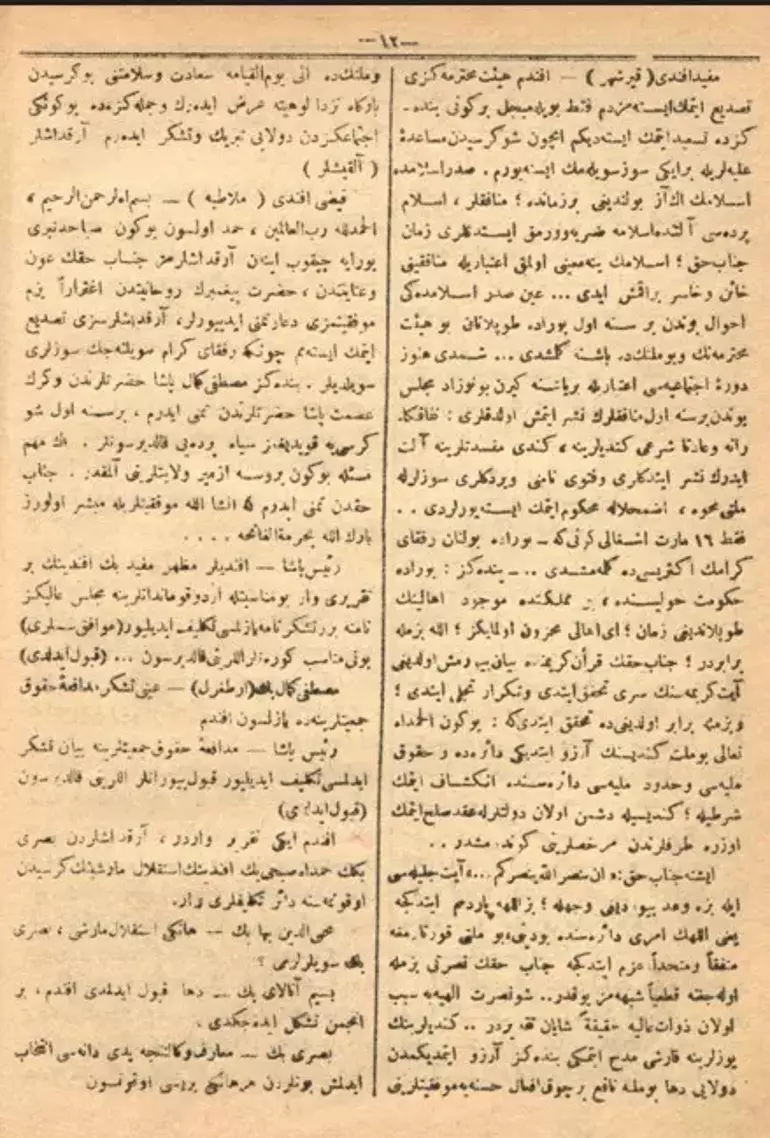 —١٢—
مفيد افندی ( قيرشهر ) — افندم هيئت محترمه كزی
تصديع ايتمك ايسته مزدم فقط بويله مبجل بركونی بنده ـ
كزده تسعيد ايتمك ايسته ديكم ايچون شو كرسيدن مساعدۀ
عليه لريله برايكی سوز سويله مك ايسته يورم . صدر اسلامده
اسلامك اك آز بولنديغی برزمانده ؛ منافقلر ، اسلام
پرده سی آلتنده اسلامه ضربه وورمق ايستدكلری زمان
جناب حق ؛ اسلامك يته معينی اولمق اعتباريله منافقينی
خائن و خاسر براقمش ايدی ... عين صدر اسلامده كی
احوال بوندن بر سنه اول بوراده طوپلانان بو هيئت
محترمه نك وبوملتك ده باشنه كلمشدی ... شمدی هنوز
دورۀ اجتماعيه سی اعتباريله برياشنه كيرن بو نوزاد مجلس
بوندن برسنه اول منافقلرك نشر ايتمش اولدقلری :
كندی مفسدتلرينه آلت
ايدرك نشر ايتدكلری وفتوی نامنی ويردكلری سوزلرله
ملتی محوه ، اضمحلاله محكوم ايتمك ايسته يورلردی . .
فقط ١٦ مارت اشغالی كونی كه ـ بوراده بولنان رفقای
كرامك اكثريسی ده كلمه مشدی .. ـ بنده كز : بوراده
حكومت حوليسنده ، بو مملكتده موجود اهالينك
طوپلانديغی زمان ؛ ای اهالی محزون اولمايكز ؛ الله بزمله
برابردر ؛ جناب حقك قرآن كريمنده بيان بيورمش اولديغی
آيت كريمه سنك سری تحقق ايتدی وتكرار تجلی ايتدی ؛
وبزمله برابر اولديغی ده تحقق ايتدی كه : بوكون الحمدلله
تعالی بوملت كنديسنك آرزو ايتديكی دائره ده و حقوق
مليه سی وحدود مليه سی دائره سنده انكشاف ايتمك
شرطيله ؛ كنديسيله دشمن اولان دولتلرله عقد صلح ايتمك
اوزره طرفلرندن مرخصلرينی كوندرمشدر . .
ايشته جناب حق : « ان تنصر الله ينصركم ... » آيت جليله سی
ايله بزه وعد بيورديغی وجهله ؛ بز اللهه ياردم ايتدكجه
يعنی اللهك امری دائره سنده بو دينی ، بو ملتی قورتارمغه
متفقاً ومتحداً عزم ايتدكجه جناب حقك نصرتی بزمله
اوله جغنه قطعياً شبهه مز يوقدر .. شو نصرت الهيه يه سبب
اولان ذوات عاليه حقيقةً شايان تقديردر . . كنديلرينك
يوزلرينه قارشی مدح ايتمكی بنده كز آرزو ايتمديكمدن
دولايی دها بوملته نافع برچوق افعال حسنه يه موفقيتلرينی
وملتك ده الی يوم القيامه سعادت وسلامتنی بو كرسيدن
باركاه الوهيته عرض ايدرك وجمله كزه ده بوكونكی
اجتماعكزدن دولايی تبريك وتشكر ايده رم آرقداشلر
( آلقيشلر )
فيضی افندی ( ملاطيه ) — بسم الله الرحمن الرحيم ،
الحمدلله رب العالمين ، حمد اولسون بوكون صباحدنبری
بورايه چيقوب ايدن آرقداشلرمز جناب حقك عون
وعنايتندن ، حضرت پيغمبرك روحانيتندن اغتراراً بزم
موفقيتمزی دعا و تمنی ايديورلر ، آرقداشلر سزی تصديع
ايتمك ايسته مم چونكه رفقای كرام سويلنه جك سوزلری
سويلديلر . بنده كز مصطفی كمال پاشا حضرتلرندن وكرك
عصمت پاشا حضرتلرندن تمنی ايدرم ، برسنه اول شو
كرسی يه قويديغمز سياه پرده يی قالديرسونلر . اك مهم
مسئله بوكون بروسه ازمير ولايتلرينی آلمقدر . جناب
حقدن تمنی ايدرم كه انشا الله موفقيتلريله مبشر اولورز
بارك الله بحرمة الفاتحه . . . .
رئيس پاشا — افنديلر مظهر مفيد بك افندينك بر
تقريری وار بومناسبتله اردو قوماندانلرينه مجلس عاليكز
نامنه بررتشكرنامه يازلمسی تكليف ايديليور (موافق سسلری)
بونی مناسب كورەنلر اللرينی قالديرسون ... ( قبول ايدلدی )
مصطفی كمال بك (ارطغرل) — عينی تشكر مدافعۀ حقوق
جمعيتلرينه ده يازلسون افندم
رئيس پاشا — مدافعۀ حقوق جمعيتلرينه بيان تشكر
ايدلمسی تكليف ايديليور قبول بيورانلر اللرينی قالديرسون
(قبول ايدلدی)
افندم ايكی تقرير واردر ، آرقداشلردن بصری
بكك حمدالله صبحی بك افندينك استقلال مارشنك كرسيدن
اوقونمه سنه دائر تكليفلری وار .
محی الدين بها بك — هانكی استقلال مارشی ، بصری
بك سويلرلرمی ؟
بسيم آتالای بك — دها قبول ايدلمدی افندم ، بر
انجمن تشكل ايده جكدی .
بصری بك — معارف وكالتنجه يدی دانه سی انتخاب
ايدلمش بونلردن هرهانكی بريسی اوقونسون